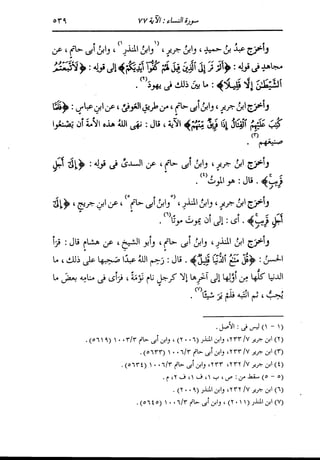 سورة النساء : الآية ٧٧
٥٣٩
وأخرَج عبدُ بنُ حميدٍ ، وابنُ جريرٍ ، (١)وابنُ المنذرِ(١) ، وابنُ أبى حاتمٍ ، عن
مجاهدٍ فى قولِه : ﴿أَلَمْ تَرَ إِلَى الَّذِينَ قِيلَ لَهُمْ كُفُّوا أَيْدِيَكُمْ﴾ إلى قولِه : ﴿لَاتَّبَعْتُمُ
الشَّيْطَانَ إِلَّا قَلِيلًا﴾ : ما بينَ ذلك فى يهودَ(٢) .
وأخرَج ابنُ جريرٍ ، وابنُ أبى حاتمٍ ، من طريقِ العوفىِّ ، عن ابنِ عباسٍ : ﴿فَلَمَّا
كُتِبَ عَلَيْهِمُ الْقِتَالُ إِذَا فَرِيقٌ مِنْهُمْ﴾ الآية ، قال : نهَى اللهُ هذه الأمةَ أن يصنَعوا
صنيعَهم(٣) .
وأخرَج ابنُ جريرٍ ، وابنُ أبى حاتمٍ ، عن السدىِّ فى قولِه : ﴿إِلَى أَجَلٍ
قَرِيبٍ﴾ . قال : هو الموتُ(٤) .
وأخرَج ابنُ جريرٍ ، (٥)وابنُ المنذرِ ، وابنُ أبى حاتمٍ(٥) ، عن ابنِ جريجٍ : ﴿إِلَى
أَجَلٍ قَرِيبٍ﴾ . أى : إلى أن يموتَ موتًا(٦) .
وأخرَج ابنُ المنذرِ ، وابنُ أبى حاتمٍ ، وأبو الشيخِ ، عن هشامٍ قال : قرَأ
الحسنُ : ﴿قُلْ مَتَاعُ الدُّنْيَا قَلِيلٌ﴾ . قال : رحِم اللهُ عبدًا صحِبها على ذلك ، ما
الدنيا كلُّها من أوَّلِها إلى آخرِها إلا كرجلٍ نام نومةً ، فرأى فى منامِه بعضَ ما
يُحِبُّ ، ثم انتبه فلم يَرَ شيئًا(٧) .
(١ - ١) ليس فى : الأصل .
(٢) ابن جرير ٢٣٣/٧ ، وابن المنذر (٢٠٠٦) ، وابن أبى حاتم ١٠٠٣/٣ (٥٦١٩) .
(٣) ابن جرير ٢٣٣/٧ ، وابن أبى حاتم ١٠٠٦/٣ (٥٦٣٣) .
(٤) ابن جرير ٢٣٢/٧ ، ٢٣٣ ، وابن أبى حاتم ١٠٠٦/٣ (٥٦٣٤) .
(٥ - ٥) سقط من : ص ، ب ١ ، ف ١ ، ف ٢ ، م .
(٦) ابن جرير ٢٣٢/٧ ، وابن المنذر (٢٠٠٩) .
(٧) ابن المنذر (٢٠١١) ، وابن أبى حاتم ١٠٠٦/٣ (٥٦٤٥) .